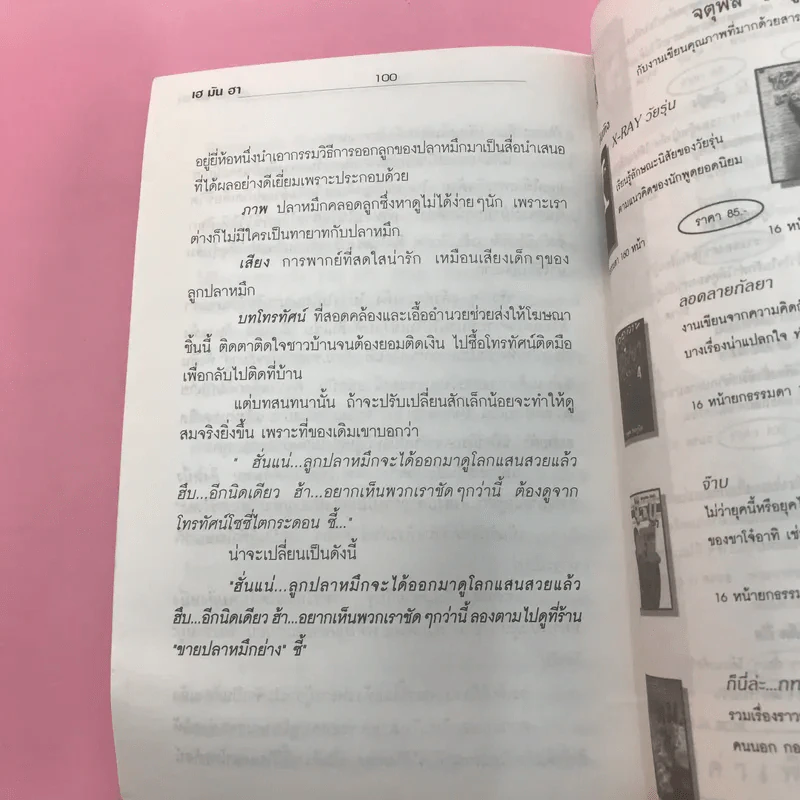 เฮ มัน ฮา
100
อยู่ยี่ห้อหนึ่งนำเอากรรมวิธีการออกลูกของปลาหมึกมาเป็นสื่อนำเสนอ
ที่ได้ผลอย่างดีเยี่ยมเพราะประกอบด้วย
ภาพ ปลาหมึกคลอดลูกซึ่งหาดูไม่ได้ง่ายๆนัก เพราะเรา
ต่างก็ไม่มีใครเป็นทายาทกับปลาหมึก
เสียง การพากย์ที่สดใสน่ารัก เหมือนเสียงเด็กๆของ
ลูกปลาหมึก
บทโทรทัศน์ ที่สอดคล้องและเอื้ออำนวยช่วยส่งให้โฆษณา
ชิ้นนี้ ติดตาติดใจชาวบ้านจนต้องยอมติดเงิน ไปซื้อโทรทัศน์ติดมือ
เพื่อกลับไปติดที่บ้าน
แต่บทสนทนานั้น ถ้าจะปรับเปลี่ยนสักเล็กน้อยจะทำให้ดู
สมจริงยิ่งขึ้น เพราะที่ของเดิมเขาบอกว่า
" ฮั่นแน่...ลูกปลาหมึกจะได้ออกมาดูโลกแสนสวยแล้ว
ฮึบ...อีกนิดเดียว ฮ้า...อยากเห็นพวกเราชัดๆกว่านี้ ต้องดูจาก
โทรทัศน์โซชี่ไตกระดอน ซี้..."
น่าจะเปลี่ยนเป็นดังนี้
"ฮั่นแน่...ลูกปลาหมึกจะได้ออกมาดูโลกแสนสวยแล้ว
ฮึบ...อีกนิดเดียว ฮ้า...อยากเห็นพวกเราชัดๆกว่านี้ ลองตามไปดูที่ร้าน
"ขายปลาหมึกย่าง" ซี้"
จตุพล
กับงานเขียนคุณภาพที่มากด้วยสาร
X-RAY วัยรุ่น
เรียนรู้ลักษณะนิสัยของวัยรุ่น
ตามแนวคิดของนักพูดยอดนิยม
ราคา 85.-
160 หน้า
16 หน้า
ลอดลายกัลยา
งานเขียนจากความคิด
บางเรื่องน่าแปลกใจ
16 หน้ายกธรรมดา
จ๊าบ
ไม่ว่ายุคนี้หรือยุค
ของขาโจ๋อาทิ เช่
16 หน้ายกธรรม
ก็นี่ล่ะ...กท
รวมเรื่องราว
คนนอก